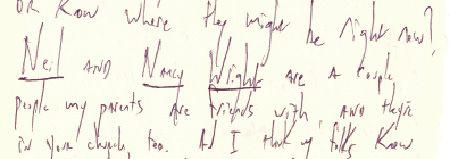 OR know where they might be right now?
Neil AND Nancy Wright are a couple
people my parents are friends with, AND they're
in your church, too. And I think my folks know